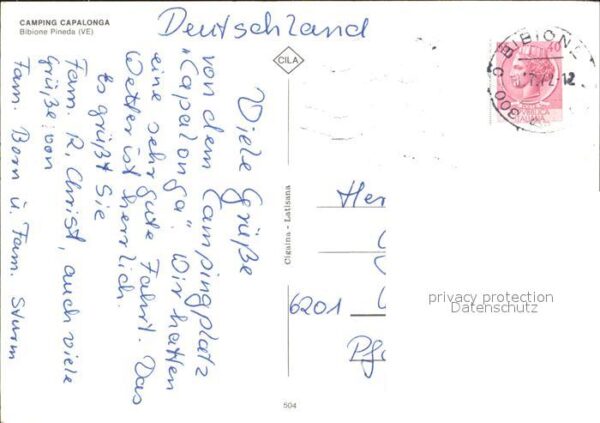 CAMPING CAPALONGA
Bibione Pineda (VE)
Deutschland
CILA
BIBIONE
Viele Grüße
von dem Campingplatz
"Capalonga". Wir hatten
eine sehr gute Fahrt. Das
Wetter ist herrlich.
Es grüßt Sie
Fam. R. Christ, auch viele
Grüße von
Fam. Born u. Fam. Sturm
Cigaina - Latisana
Her
6201
privacy protection
Datenschutz
504